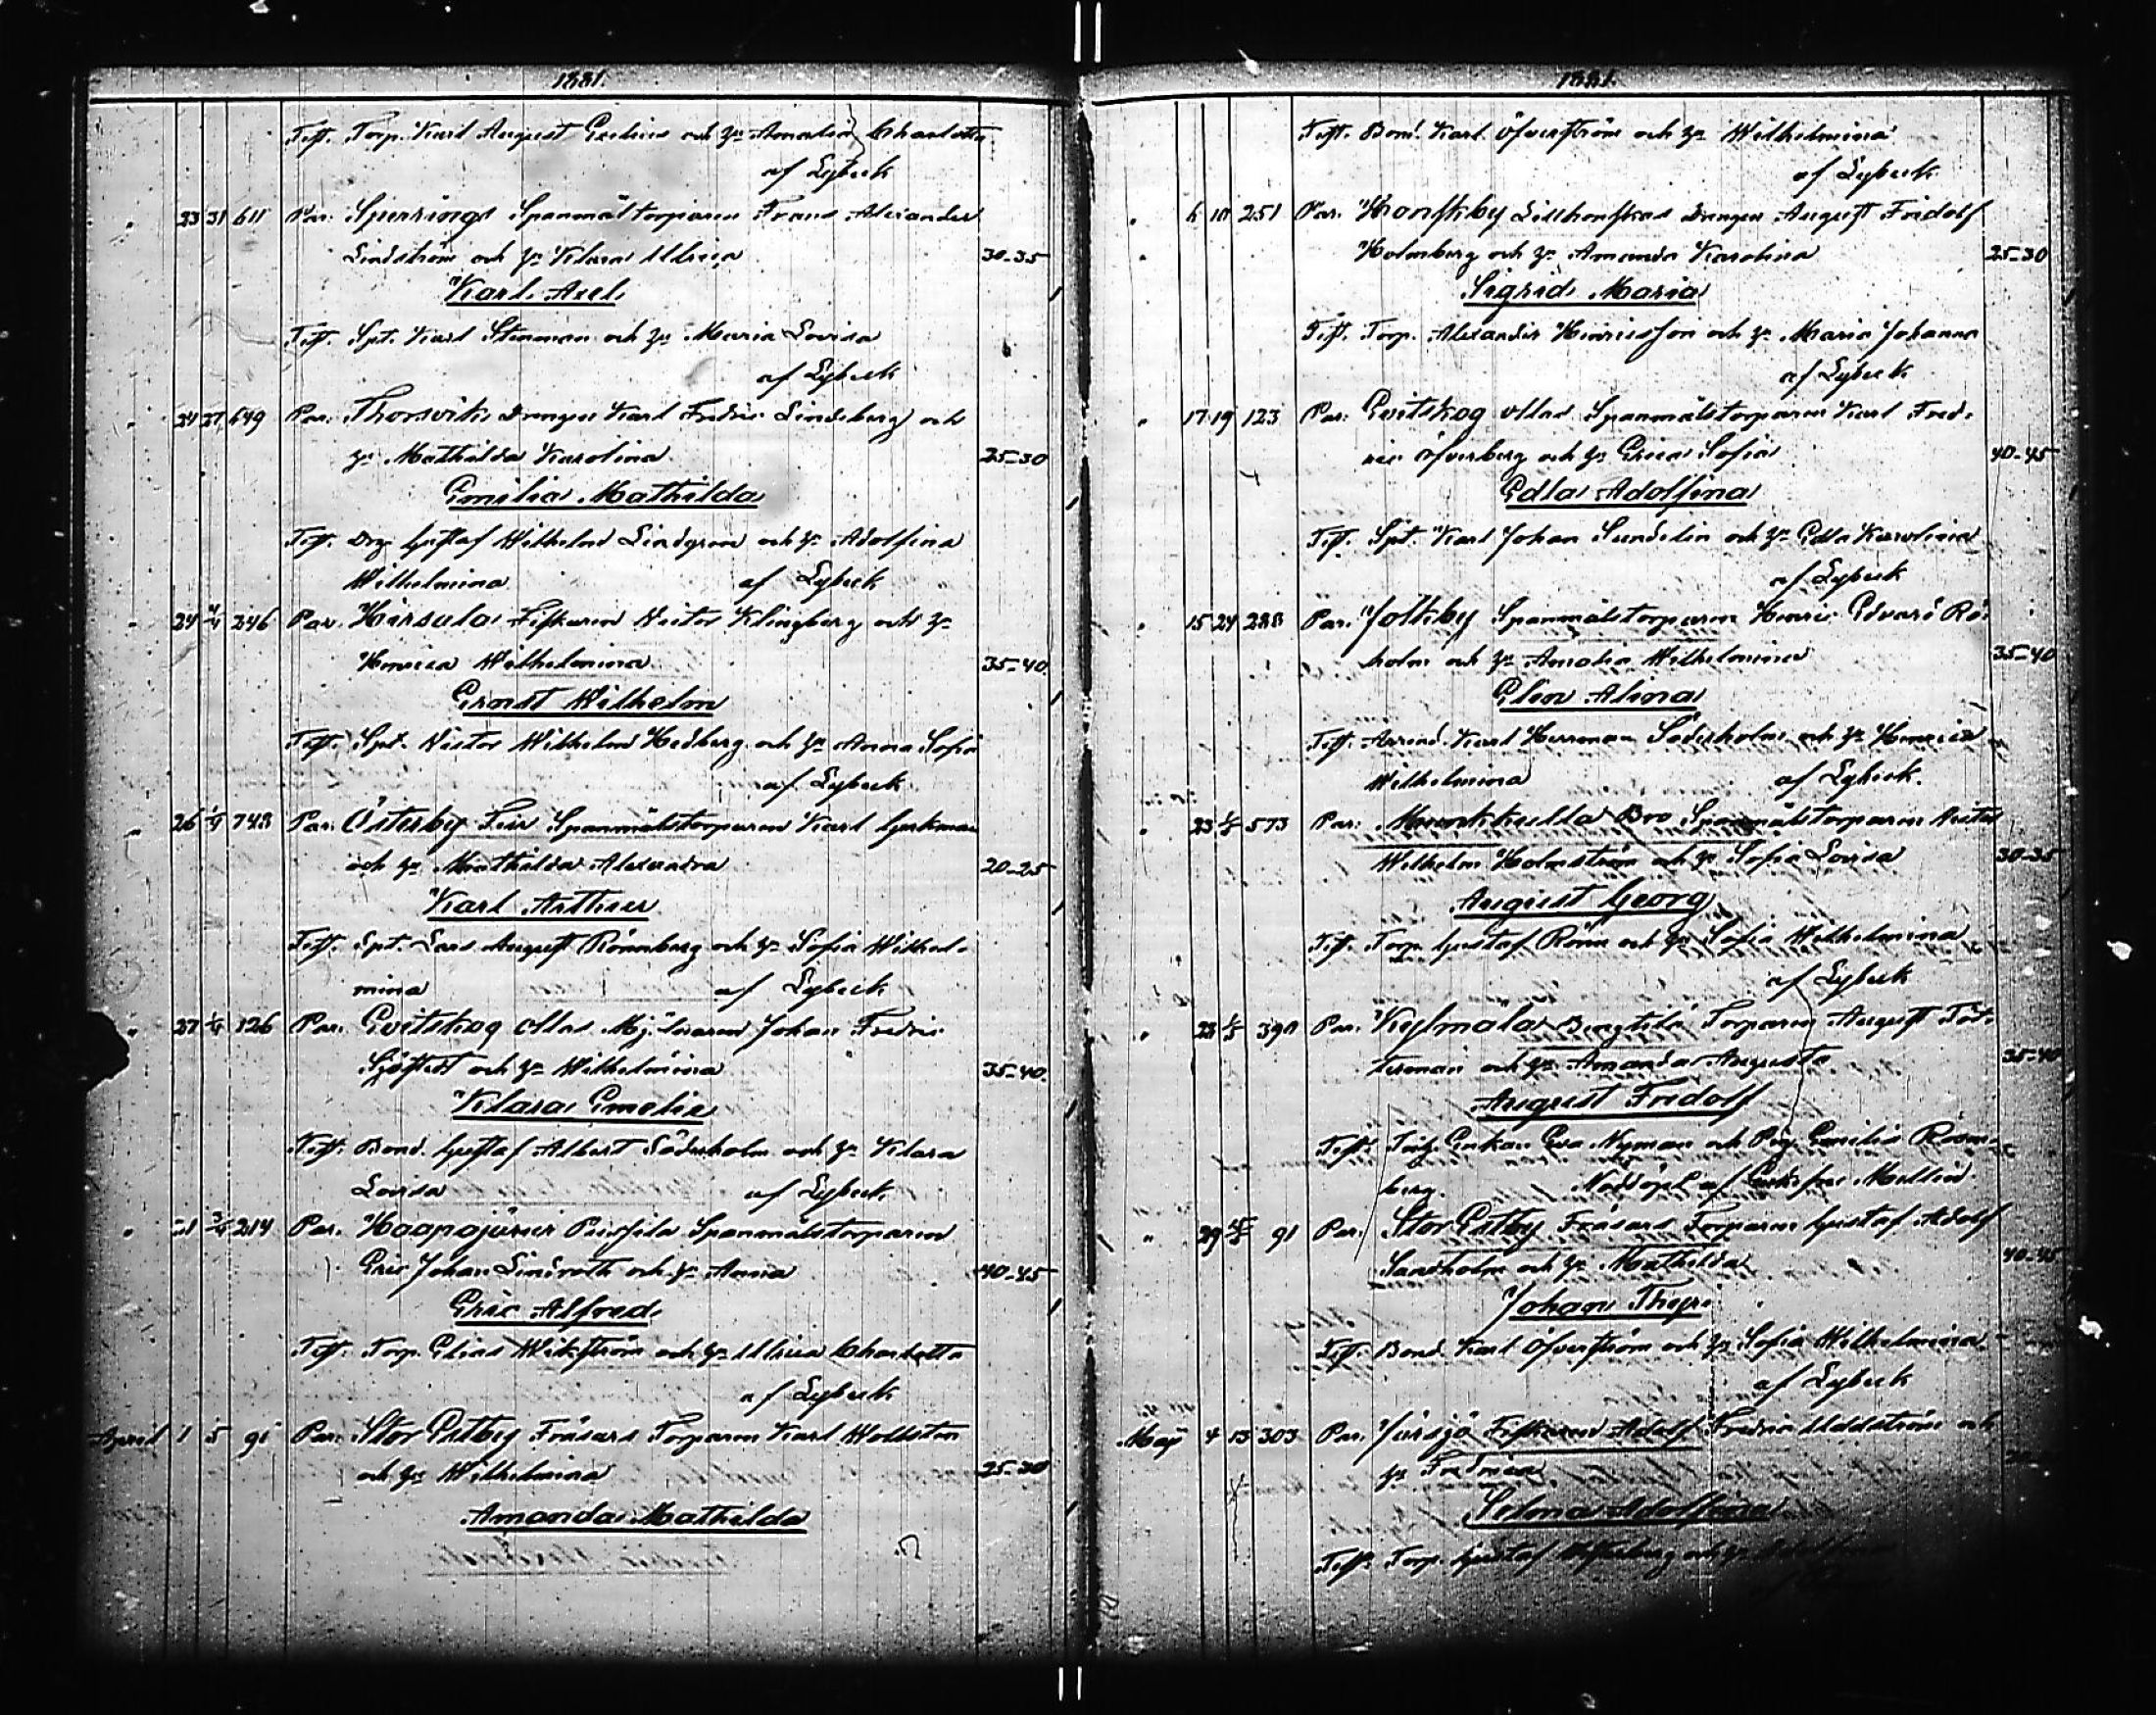 1881.
Test. Torp. Karl August Grelius och h:u Amalia Charlotta
af Lybeck
" 23 31 611 Par. Sperrings Spanmålstorparen Frans Alexander
Lindström och h:u Klara Ulrica 30-35
Karl Axel
Test. Spt. Karl Stenman och h:u Maria Lovisa
af Lybeck
" 24 27 649 Par. Thorsvik Drängen Karl Fredric Lindeberg och
h:u Mathilda Karolina 25-30
Emilia Mathilda
Test. Drg. Gustaf Wilhelm Lindgren och h:u Adolfina
Wilhelmina af Lybeck
" 24 4/4 246 Par. Hirsala Fiskaren Victor Klingberg och h:u
Henrica Wilhelmina 35-40
Ernst Wilhelm
Test. Spt. Victor Wilhelm Hedberg och h:u Anna Sofia
af Lybeck
" 26 1/4 748 Par. Österby Spanmålstorparen Karl
och h:u Mathilda Alexandra 20-25
Karl Arthur
Test. Spt. Lars August Rönnberg och h:u Sofia Wilhel-
mina af Lybeck
" 27 1/4 126 Par. Evitskog Ollas Mjölnaren Johan Fredric
Sjöstedt och h:u Wilhelmina 35-40
Klara Emelie
Test. Bond. Gustaf Albert Söderholm och h:u Klara
Lovisa af Lybeck
" 21 3/4 214 Par. Haapajärvi Spanmålstorparen
Eric Johan Lindroth och h:u Anna 40-45
Eric Alfred
Test. Torp. Elias Wikström och h:u Ulrica Charlotta
af Lybeck
April 1 5 91 Par. Stor Estby Fräsars Torparen Karl Wollsten
och h:u Wilhelmina 25-30
Amanda Mathilda
1881.
Test. Bond. Karl Öfverström och h:u Wilhelmina
af Lybeck
" 6 10 251 Par. Honskby Drängen August Fridolf
Holmberg och h:u Amanda Karolina 25-30
Sigrid Maria
Test. Torp. Alexander Henricsson och h:u Maria Johanna
af Lybeck
" 17 19 123 Par. Evitskog Ollas Spanmålstorparen Karl Fred-
ric Öfverberg och h:u Erica Sofia 40-45
Edla Adolfina
Test. Spt. Karl Johan Sundelin och h:u Edla Karolina
af Lybeck
" 15 24 288 Par. Jolkby Spanmålstorparen Henric Edvard Rö-
holm och h:u Amalia Wilhelmina 35-40
Elin Alina
Test. Arrend. Karl Herman Söderholm och h:u Henrica
Wilhelmina af Lybeck.
" 23 1/5 573 Par. Munkkulla Bro Spanmålstorparen Victor
Wilhelm Holmström och h:u Sofia Lovisa 30-35
August Georg
Test. Torp. Gustaf Rönn och h:u Sofia Wilhelmina
af Lybeck
" 23 1/5 390 Par. Kylmälä Bengtilä Torparen August Töt-
terman och h:u Amanda Augusta 35-40
August Fridolf
Test. Enkan Eva Nyman och Pig. Emilia Rosen-
berg. Nöddöpt af Mellin
" 29 15/5 91 Par. Stor Estby Fräsars Torparen Gustaf Adolf
Sandholm och h:u Mathilda 40-45
Johan Thure
Test. Bond. Karl Öfverström och h:u Sofia Wilhelmina
af Lybeck
Maj 4 13 303 Par. Järsjö Fiskaren Adolf Fredric Uddström och
h:u Fredrica
Selma Adolfina
Test. Torp. Gustaf och h:u